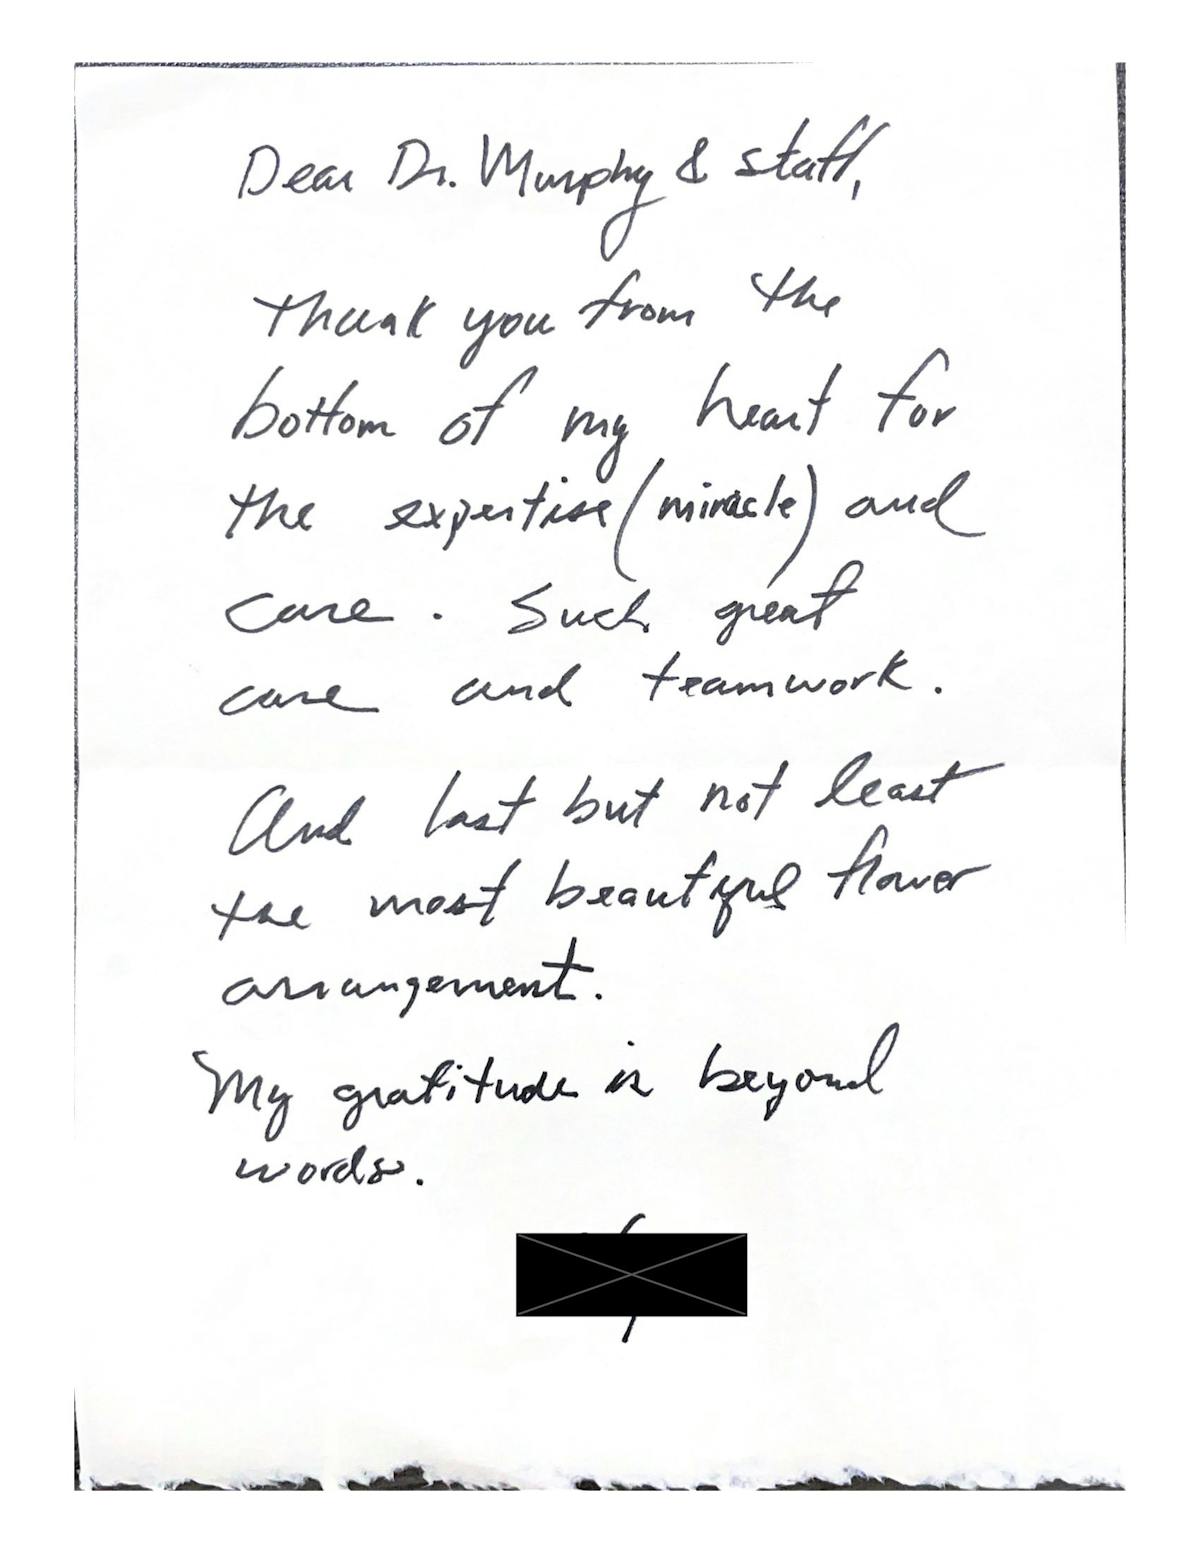 Dear Dr. Murphy & staff,
Thank you from the
bottom of my heart for
the expertise (miracle) and
care. Such great
care and teamwork.
And last but not least
the most beautiful flower
arrangement.
My gratitude is beyond
words.